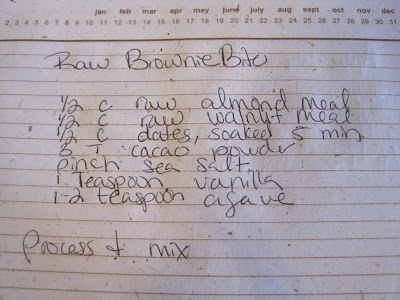 jan feb mar apr may june july aug sept oct nov dec
2 3 4 5 6 7 8 9 10 11 12 13 14 15 16 17 18 19 20 21 22 23 24 25 26 27 28 29 30 31
Raw Brownie Bite
1/2 c raw almond meal
1/2 c raw walnut meal
1/2 c dates, soaked 5 min
3 T cacao powder
pinch sea salt
1 Teaspoon vanilla
1-2 teaspoon agave
Process & mix